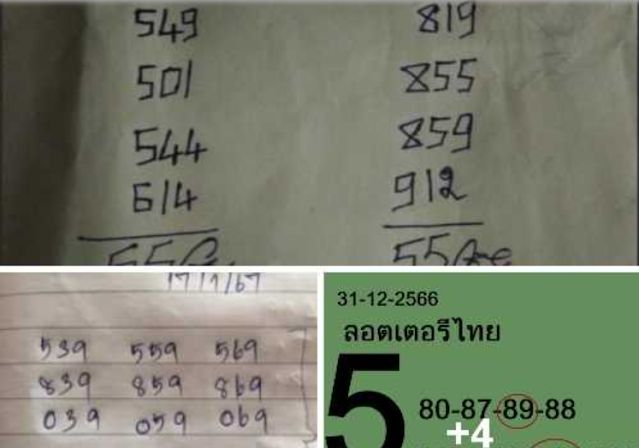 549 819
501 855
544 859
614 912
17/1/67
539 559 569
839 859 869
039 059 069
31-12-2566
ลอตเตอรี่ไทย
5
80-87-89-88
+4